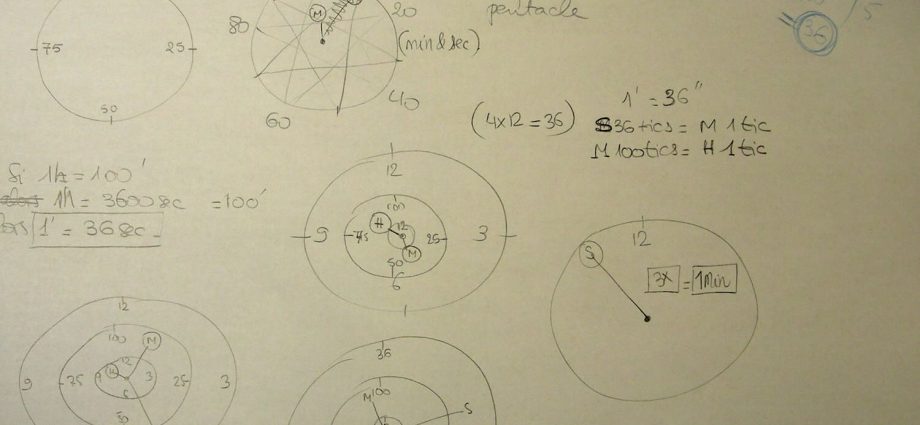 75
25
50
80
M
20
(min & sec)
40
60
pentacle
36
5
(4x12 = 36)
1' = 36"
S 36 tics = M 1 tic
M 100 tics = H 1 tic
Si 1h = 100'
1h = 3600 sec = 100'
1' = 36 sec
12
9
3
100
75
25
50
6
12
H
M
12
S
3X = 1 Min
12
9
3
100
75
25
50
M
12
9
3
6
H
36
100
M
S